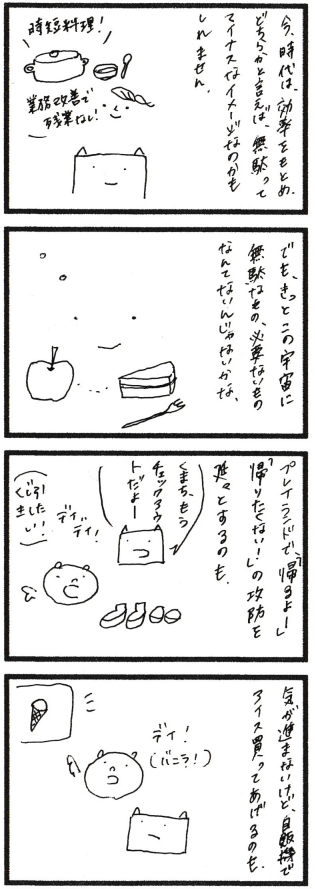 今、時代は、効率をもとめ、
どちらかと言えば、無駄って
マイナスなイメージなのかも
しれません。
時短料理!
業務改善で
残業なし!
でも、きっとこの宇宙に
無駄なもの、必要ないもの
なんてないんじゃないかな、
プレイランドで、「帰るよー」
「帰りたくない!」の攻防を
延々とするのも、
くまち、もう
チェックアウ
トだよー
ディ
ディ!
(くじ引
きした
い!)
気が進まないけど、自販機で
アイス買ってあげるのも、
ディ!
(バニラ!)